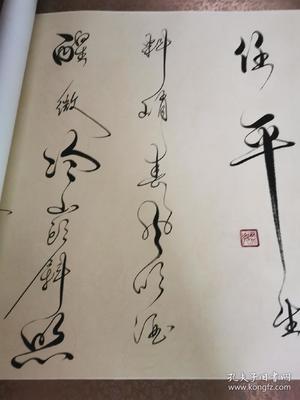 任平生
料峭春风吹酒
醒微冷山头斜照
孔夫子旧书网